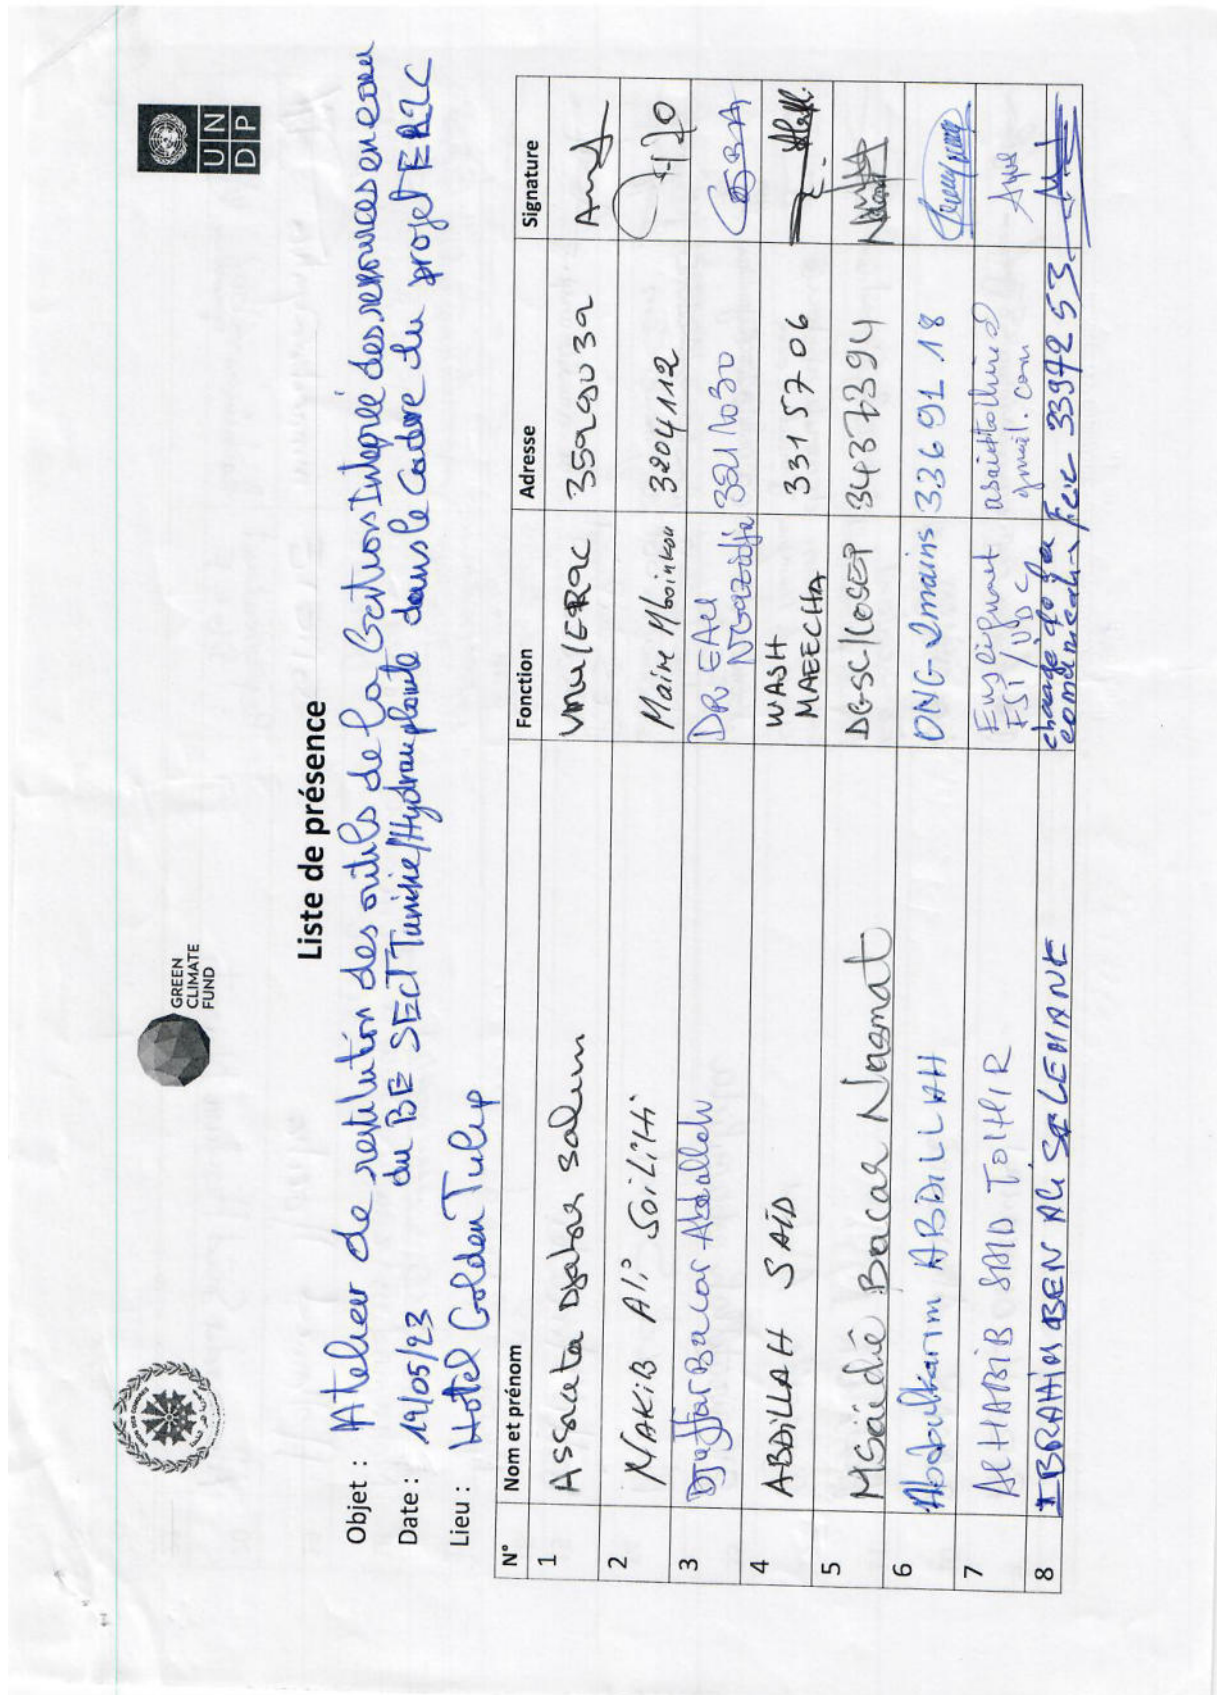 GREEN
CLIMATE
FUND
U N
D P
Liste de présence
Objet : Atelier de restitution des outils de la Gestion Intégrée des ressources en eau
du BE SECT Tunisie/Hydrauplante dans le Cadre du projet ER2C
Date : 19/05/23
Lieu : Hotel Golden Tulip
N° Nom et prénom Fonction Adresse Signature
1 Assata Djabar Salim ER2C
2 NAKIB Ali SOILIHI Maire Mboinkou 3204112
3 Djaffar Bacar Abdallah DR EAU
NGazidja 3211030
4 ABDILLAH SAÏD WASH
MAEECHA 331 57 06
5 MSaidié Bacar Nasmat DGSC/COSEP 3437394
6 Abdoulkarim ABDILLAH ONG 2mains 336 91 18
7 ALHABIB SAID TOIHIR Enseignant
FST/UDC
gmail.com
8 IBRAHIM BEN Ali SELEMANE chargé de la
FCIC 3397253